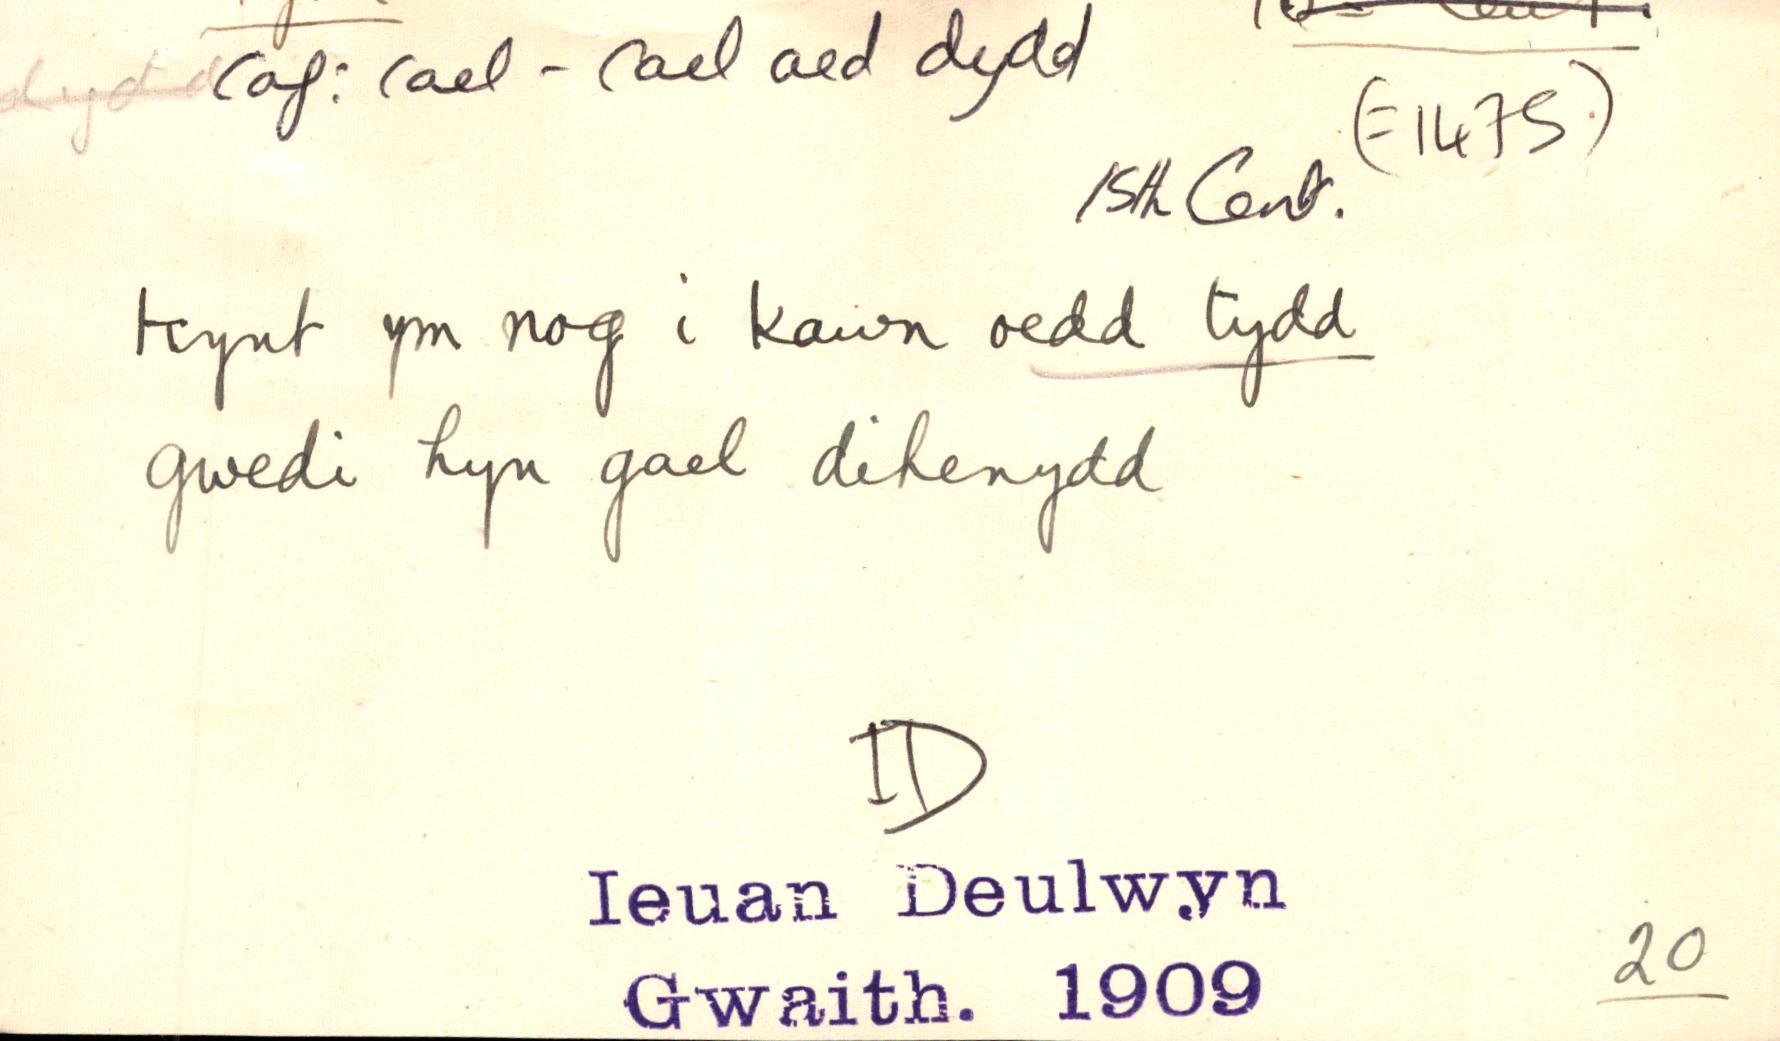 dydd caf: cael - cael oed dydd
(=1475)
15th Cent.
kynt ym nog i kawn oedd tydd
gwedi hyn gael dihenydd
ID
Ieuan Deulwyn
Gwaith. 1909
20